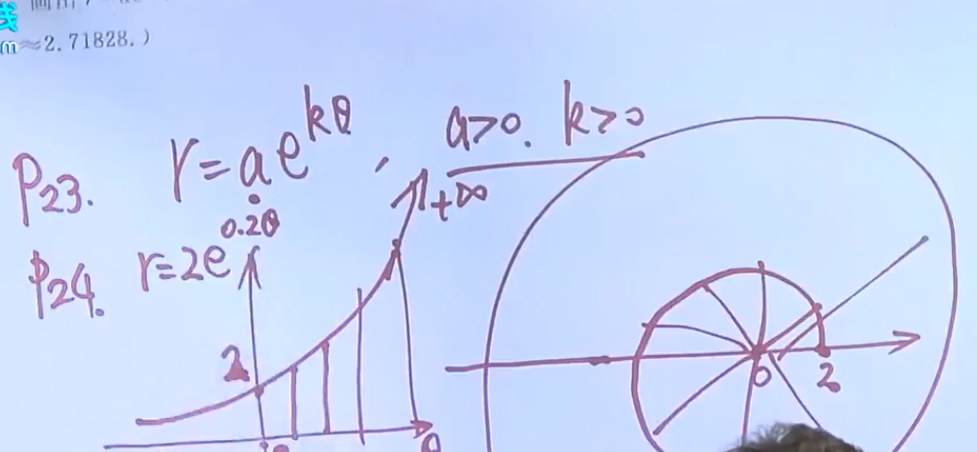 线
≈2.71828.)
P23. r=ae^{kθ}, a>0. k>0
+∞
P24. r=2e^{0.2θ}
2
0 2
θ